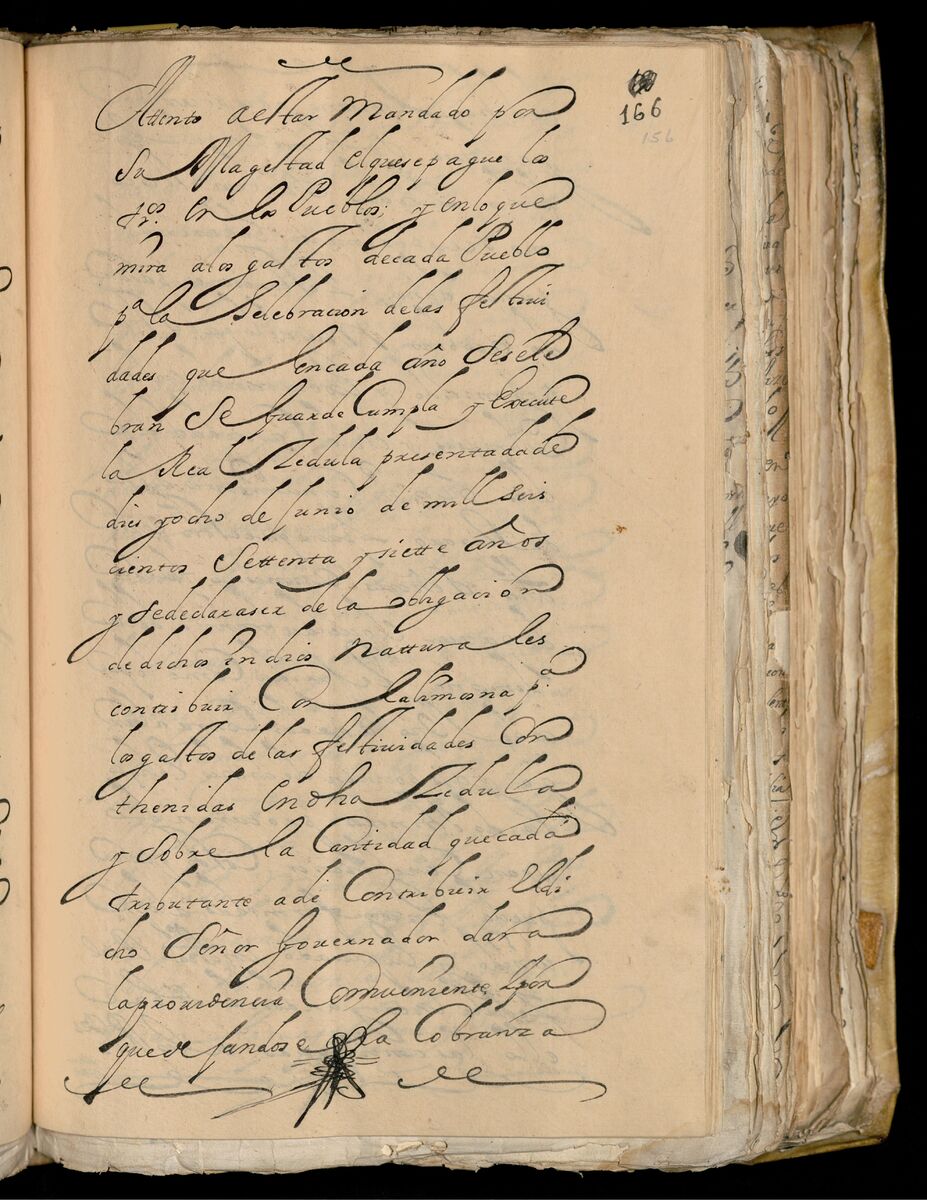 166
156
Attento aestar Mandado por
Su Magestad elquesepague los
drōs. en los Pueblos; y enloque
mira alos gastos decada Pueblo
pª la Selebracion delas festivi
dades que encada año Sesele
bran Se Guarde Cumpla y Execute
la Real Zedula presentadade
dies yocho de Junio de mill seis
cientos Settenta ysiette años
y Sedeclaraser de la obligacion
dedichos indios Natturales
contribuir Con lalimosna pª.
los gastos de las festividades Con
thenidas en dha Zedulla
y Sobre la Cantidad quecada
tributante ade Contribuir eldi
cho Señor Governador dara
laprovidencia Comveniente,
quedefandose la Cobranza